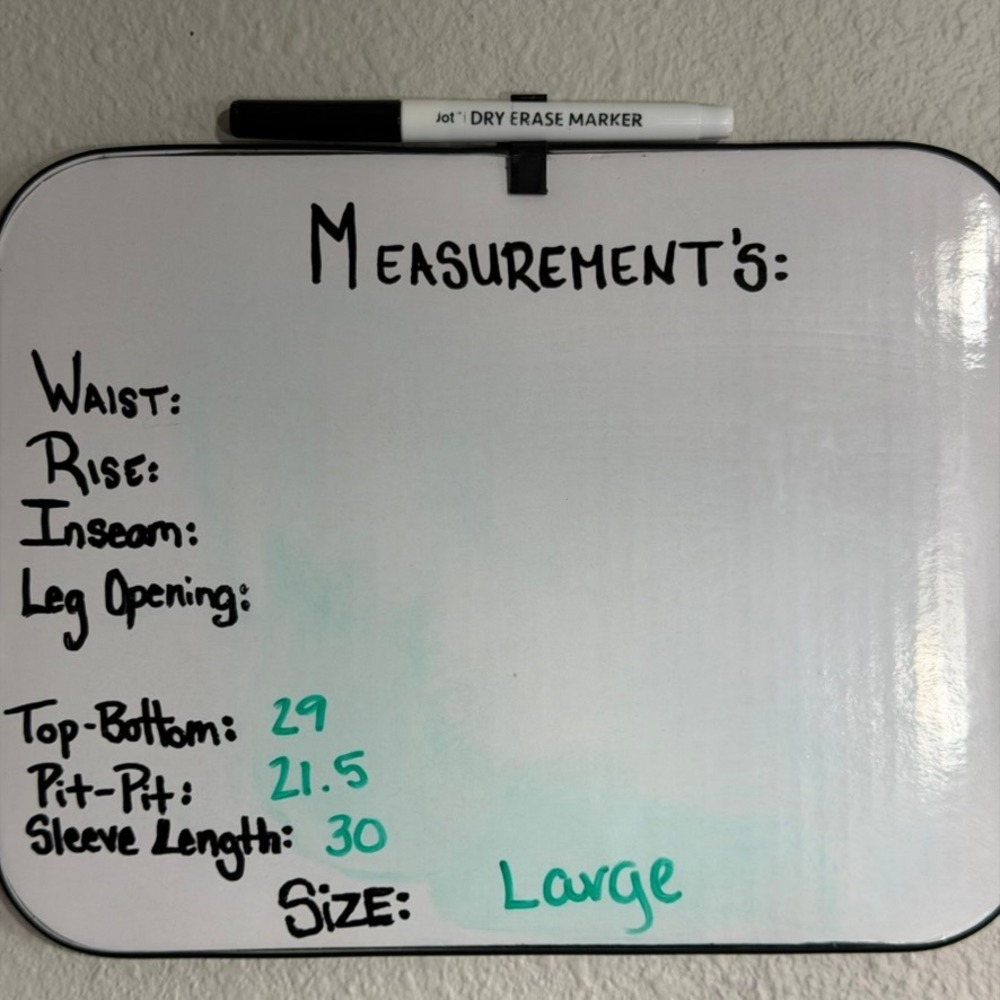 Jot™ DRY ERASE MARKER
MEASUREMENT'S:
WAIST:
RISE:
Inseam:
Leg Opening:
Top-Bottom: 29
Pit-Pit: 21.5
Sleeve Length: 30
SiZE: Large